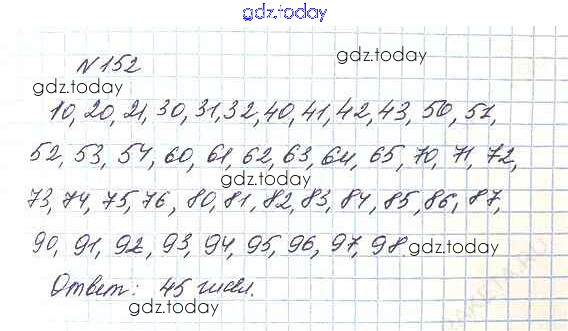 gdz.today
gdz.today
№ 152
gdz.today
10, 20, 21, 30, 31, 32, 40, 41, 42, 43, 50, 51,
52, 53, 54, 60, 61, 62, 63, 64, 65, 70, 71, 72,
gdz.today
73, 74, 75, 76, 80, 81, 82, 83, 84, 85, 86, 87,
90, 91, 92, 93, 94, 95, 96, 97, 98. gdz.today
Ответ: 45 чисел.
gdz.today